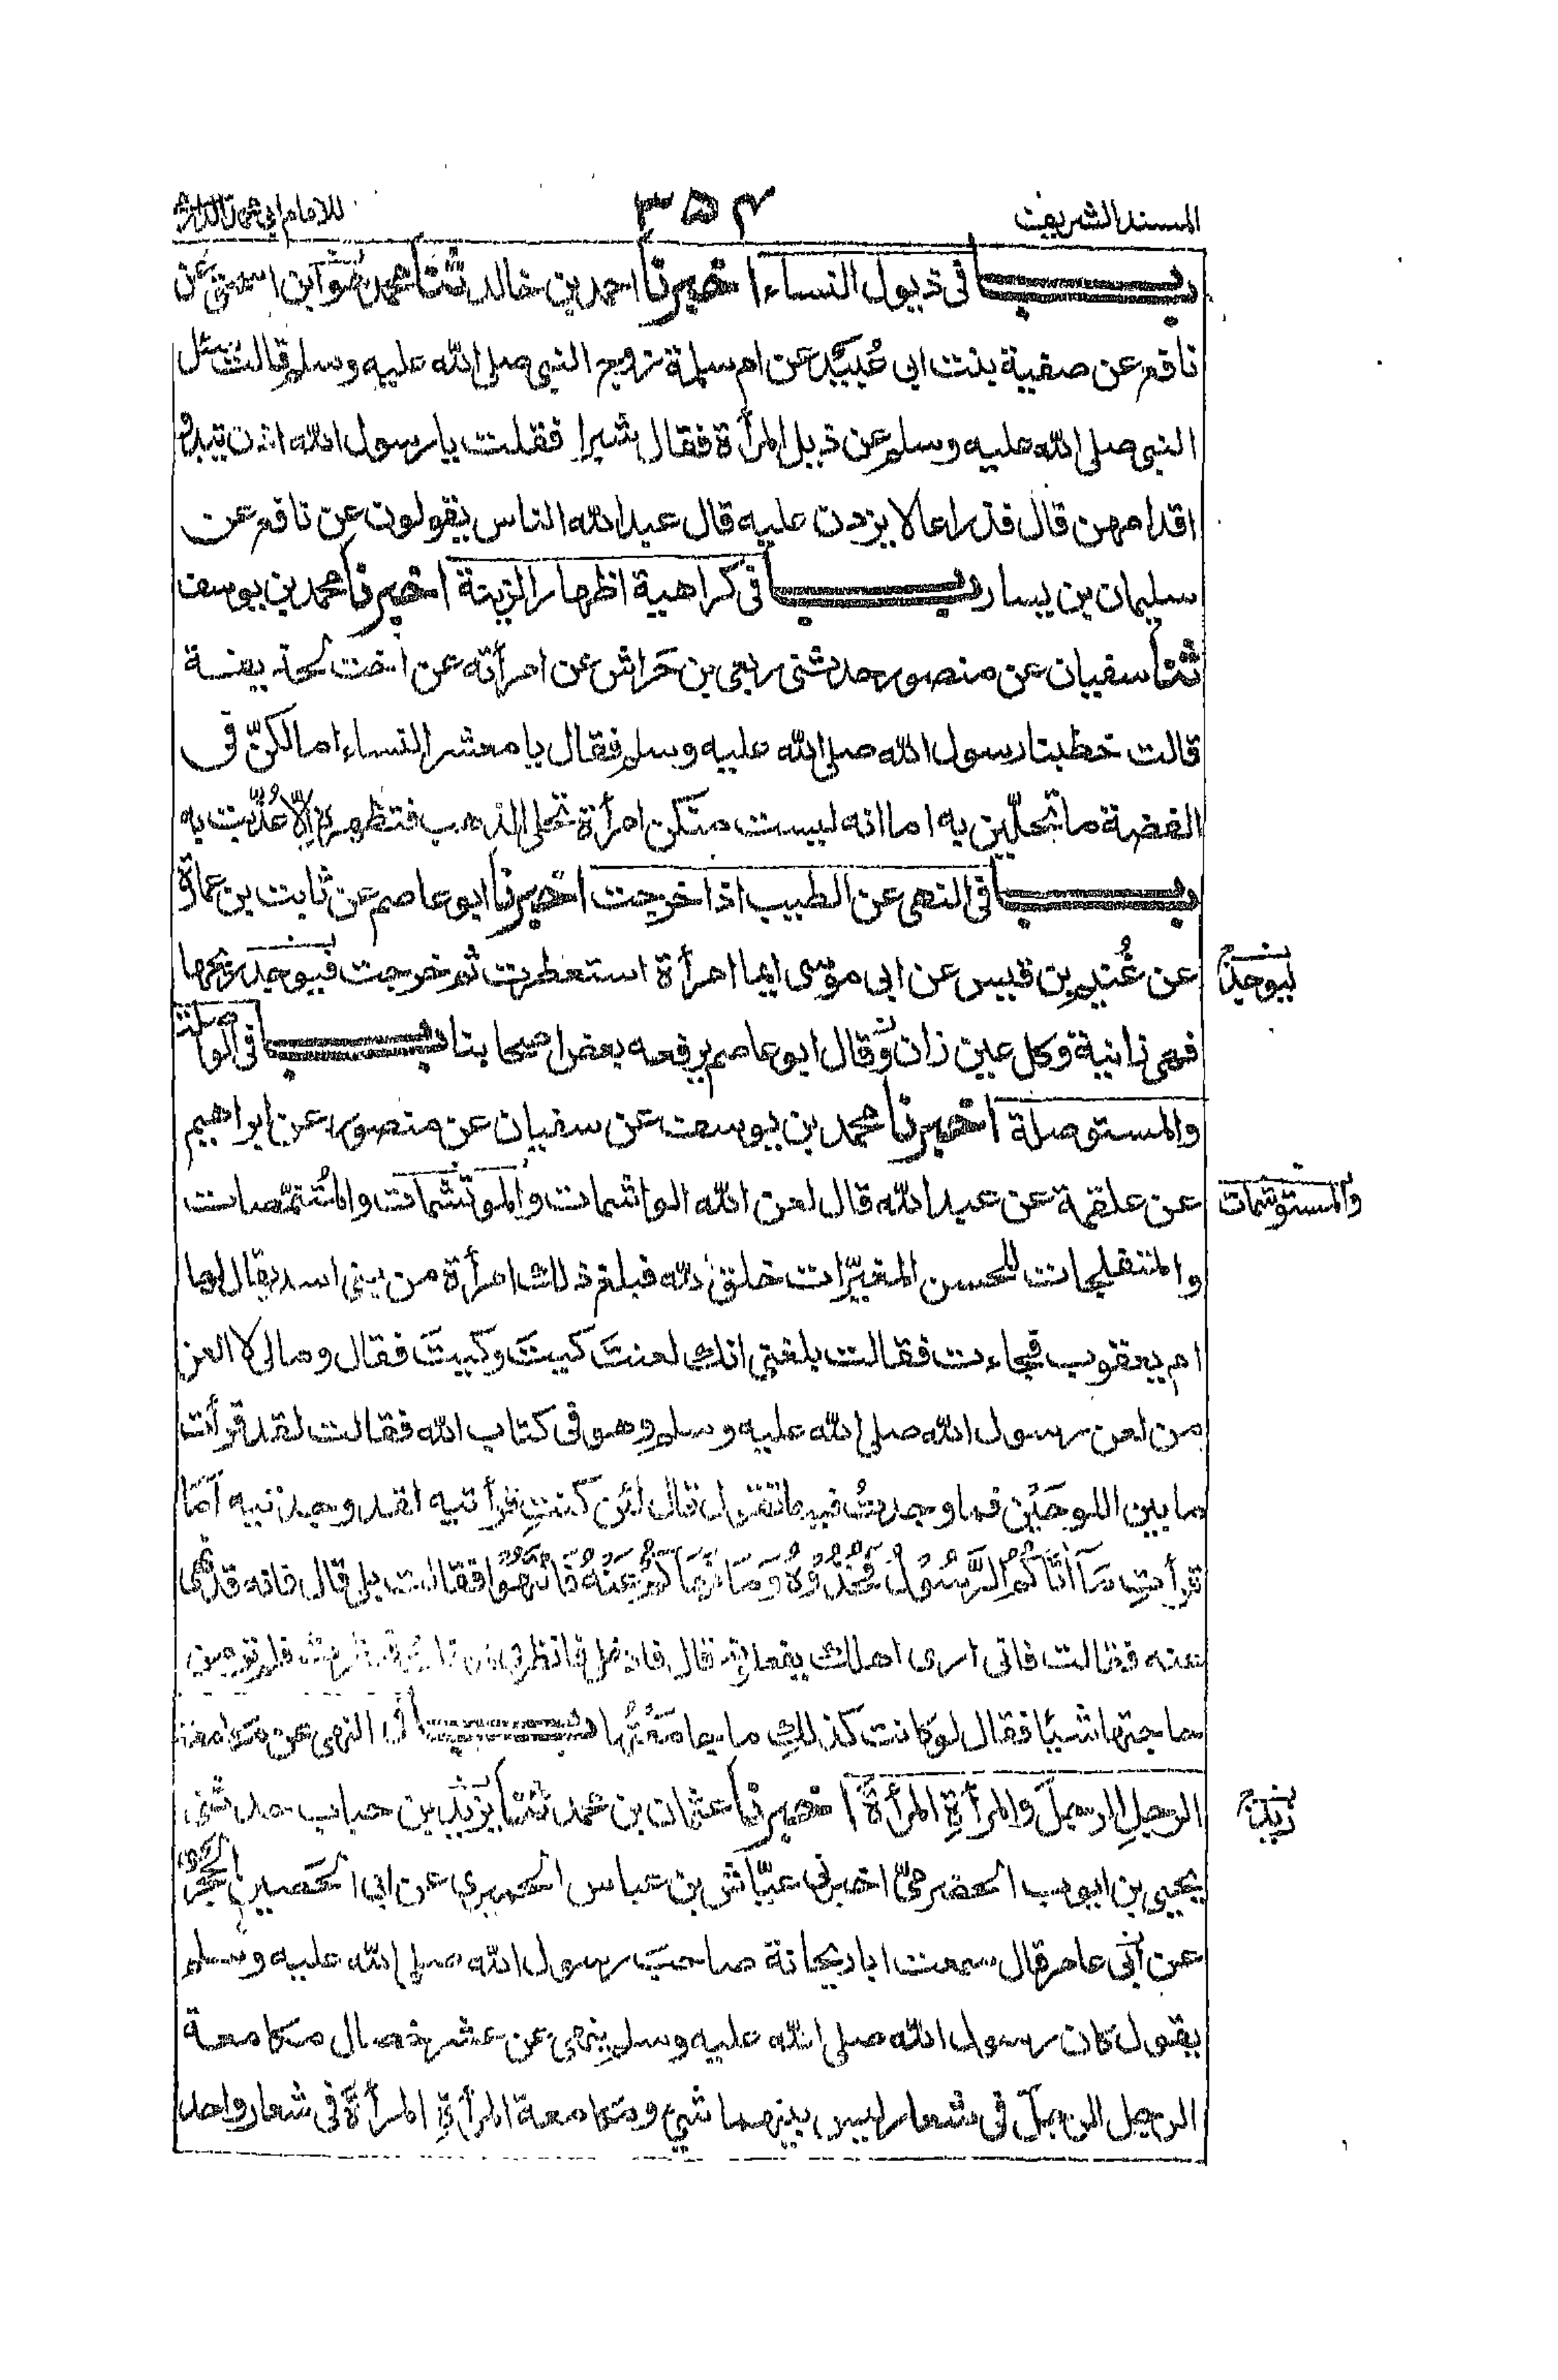 المسند الشريف
٣٥٢
للامام ابى محمد الدارمى
باب فى ذيول النساء اخبرنا احمد بن خالد ثنا محمد هو ابن اسحق عن
نافع عن صفية بنت ابى عُبَيْد عن ام سلمة زوج النبى صلى الله عليه وسلم قالت سئل
النبى صلى الله عليه وسلم عن ذيل المرأة فقال شبرا فقلت يا رسول الله اذن تبدو
اقدامهن قال فذراعا لا يزدن عليه قال عبد الله الناس يقولون عن نافع عن
سليمان بن يسار باب فى كراهية اظهار الزينة اخبرنا محمد بن يوسف
ثنا سفيان عن منصور حدثنى ربعى بن حَراش عن امرأته عن أخت لحذيفة
قالت خطبنا رسول الله صلى الله عليه وسلم فقال يا معشر النساء اما لكنّ فى
الفضة ما تحلّين به اما انه ليست منكن امرأة تحلى الذهب فتظهره إلّا عُذّبت به
باب فى النهى عن الطيب اذا خرجت اخبرنا ابو عاصم عن ثابت بن عمارة
عن غُنيم بن قيس عن ابى موسى ايما امرأة استعطرت ثم خرجت فيوجد ريحها
ليوجد
فهى زانية وكل عين زان وقال ابو عاصم يرفعه بعض اصحابنا باب فى الواصلة
والمستوصلة اخبرنا محمد بن يوسف عن سفيان عن منصور عن ابراهيم
عن علقمة عن عبد الله قال لعن الله الواشمات والموتشمات والمُتَنمّصات
والمستوشمات
والمتفلجات للحسن المغيّرات خلق الله فبلغ ذلك امرأة من بنى اسد يقال لها
ام يعقوب فجاءت فقالت بلغنى انك لعنتَ كيتَ وكيتَ فقال ومالى لا العن
من لعن رسول الله صلى الله عليه وسلم وهو فى كتاب الله فقالت لقد قرأت
ما بين اللوحَيْن فما وجدتُ فيه ما تقول قال لئن كنتِ قرأتيه لقد وجدتيه أمَا
قرأتِ مَآ اٰتَاكُمُ الرَّسُوْلُ فَخُذُوْهُ وَمَا نَهَاكُمْ عَنْهُ فَانْتَهُوْا فقالت بلى قال فانه قد نهى
عنه فقالت فانى ارى اهلك يفعلونه قال فادخلى فانظرى فدخلت فنظرت فلم تر من
حاجتها شيئًا فقال لو كانت كذلكِ ما جامَعْتُها باب فى النهى عن مكامعة
الرجلِ الرجلَ والمرأةِ المرأةَ اخبرنا عثمان بن محمد ثنا يزيد بن حباب حدثنى
زيد
يحيى بن ايوب الحضرمىّ اخبرنى عيّاش بن عباس الحميرى عن ابى الحَصين الحَجْرى
عن أبى عامر قال سمعت ابا ريحانة صاحبَ رسول الله صلى الله عليه وسلم
يقول كان رسول الله صلى الله عليه وسلم ينهى عن عشر خصال مكامعة
الرجل الرجلَ فى شعار ليس بينهما شىء ومكامعة المرأةِ المرأةَ فى شعار واحد